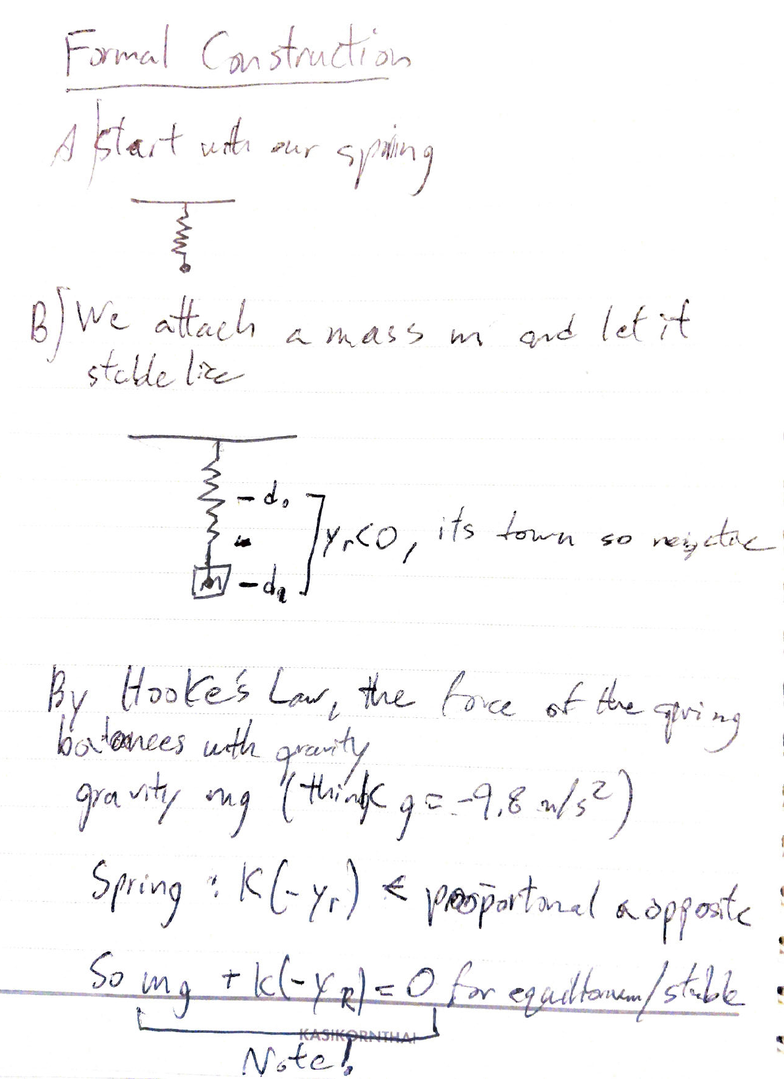 Formal Construction
A) Start with our spring
B) We attach a mass m and let it
stable like
- d₀
yᵣ<0, its down so negative
m - d₁
By Hooke's Law, the force of the spring
balances with gravity
gravity mg (think g = -9.8 m/s²)
Spring : K(-yᵣ) ← proportional & opposite
So mg + k(-y_R) = 0 for equilibrium/stable
KASIKORNTHAI
Note!